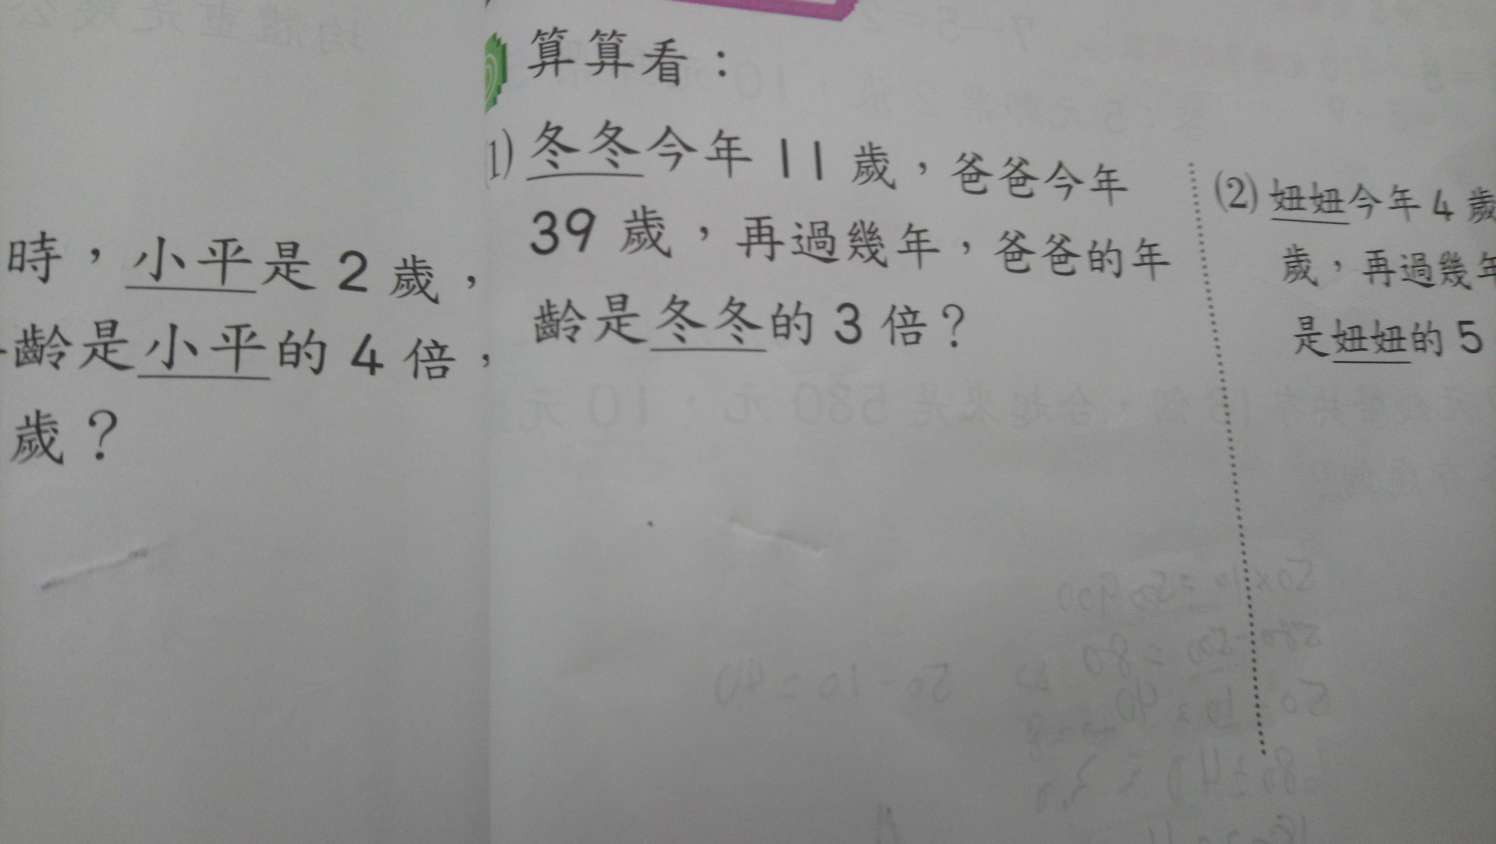 時，小平是2歲，
齡是小平的4倍，
歲？
算算看：
(1) 冬冬今年11歲，爸爸今年
39歲，再過幾年，爸爸的年
齡是冬冬的3倍？
(2) 妞妞今年4歲
歲，再過幾年
是妞妞的5